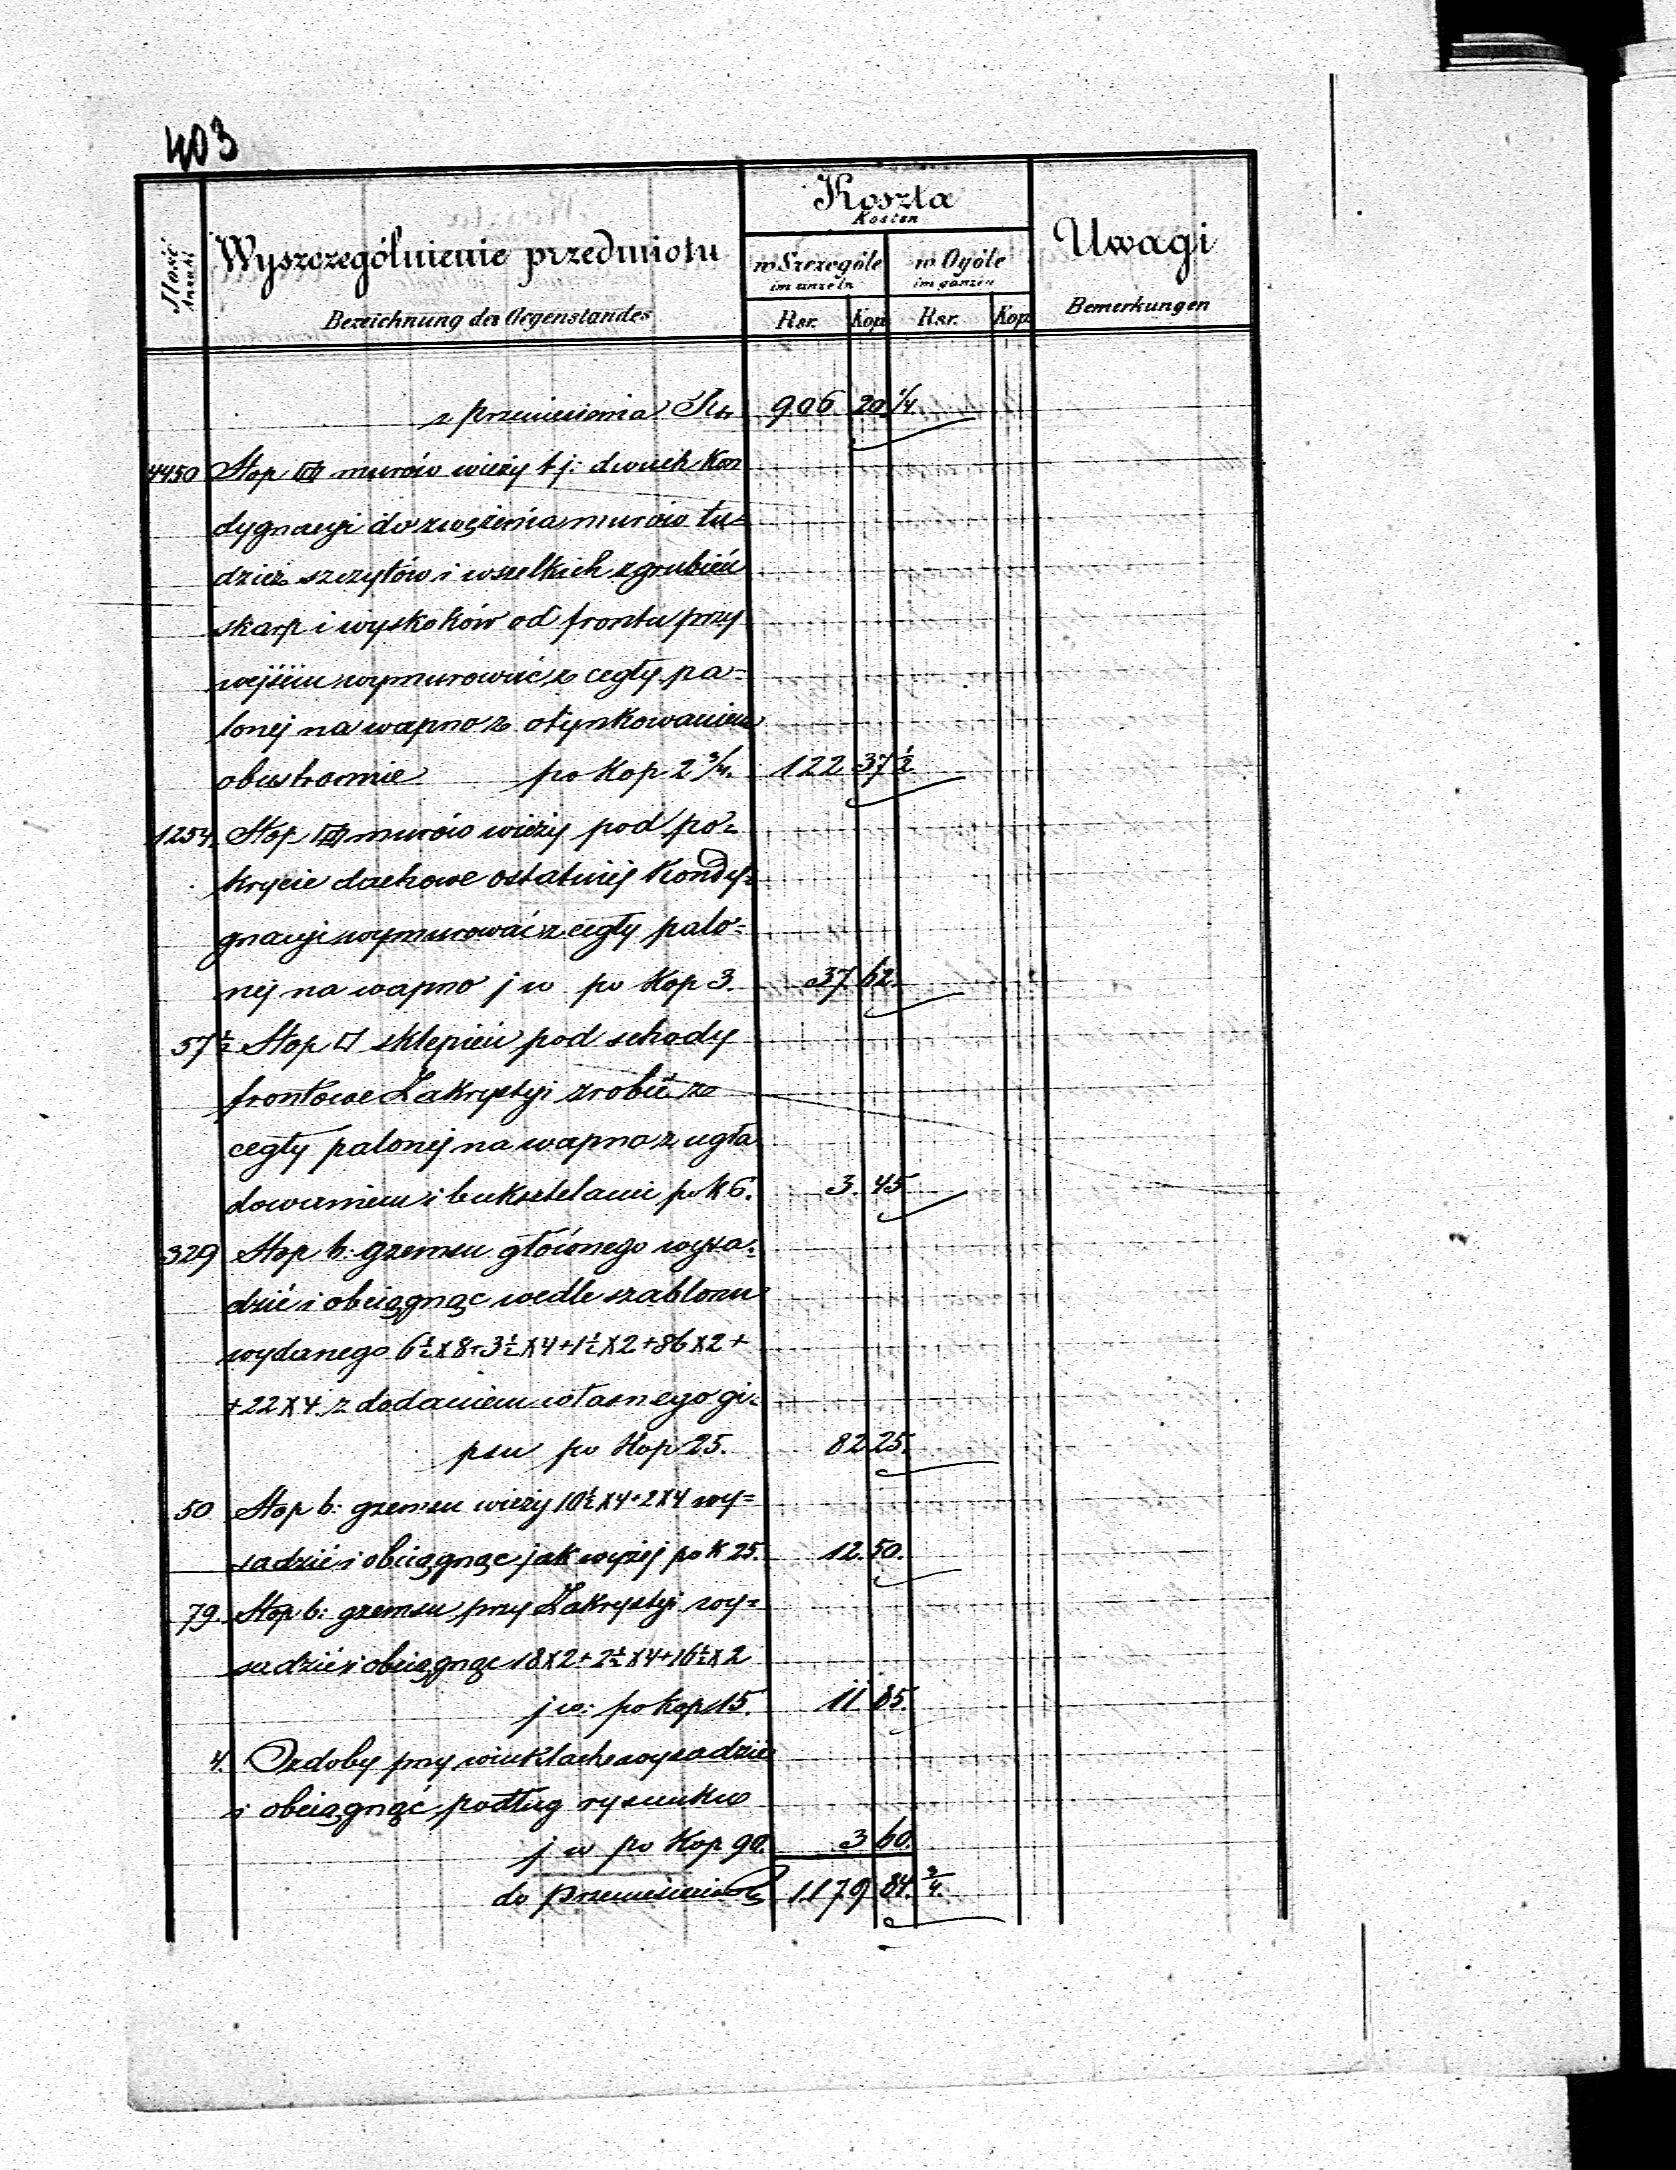 403
Ilość
Anzahl
Wyszczególnienie przedmiotu
Bezeichnung des Gegenstandes
Koszta
Kosten
w Szczególe
im einzeln
w Ogóle
im ganzen
Rsr. Kop Rsr. Kop
Uwagi
Bemerkungen
z przeniesienia Rs. 906 20 1/4.
4450 Stop murów wieży t. j: dwuch kon
dygnacyi do zwężenia murów tu=
dzież szczytów i wszelkich zgrubień
skarp i wyskoków od frontu przy
wejściu wymurować z cegły pa-
lonej na wapno z otynkowaniem
obustronnie po Kop 2 3/4. 122 37 1/2
1254. Stop murów wieży pod po=
krycie dachowe ostatniej Kondy=
gnacyi wymurować z cegły palo=
nej na wapno j w po Kop 3. 37. 62.
57 1/2 Stop □ sklepień pod schody
frontowe Zakrystyi zrobić z
cegły palonej na wapno z ugła
dowaniem i buksztelami po K 6. 3. 45
329 Stop b: gzemsu głównego wysa=
dzić i obciągnąć wedle szablonu
wydanego 6 1/2 x 8 + 3 1/2 x 4 + 1 1/2 x 2 + 86 x 2 +
+ 22 x 4. z dodaniem własnego gi=
psu po Kop 25. 82 25.
50 Stop b: gzemsu wieży 10 1/2 x 4 + 2 x 4 wy=
sadzić i obciągnąc jak wyżej po K 25. 12. 50.
79. Stop b: gzemsu przy Zakrystyi wy=
sadzić i obciągnąc 18 x 2 + 2 1/2 x 4 + 16 1/2 x 2
j w: po Kop 15. 11. 85.
4. Ozdoby przy winklach wysadzić
i obciągnąć podług rysunku
j w po Kop 90. 3 60.
do przeniesienia 1.179 84. 3/4.